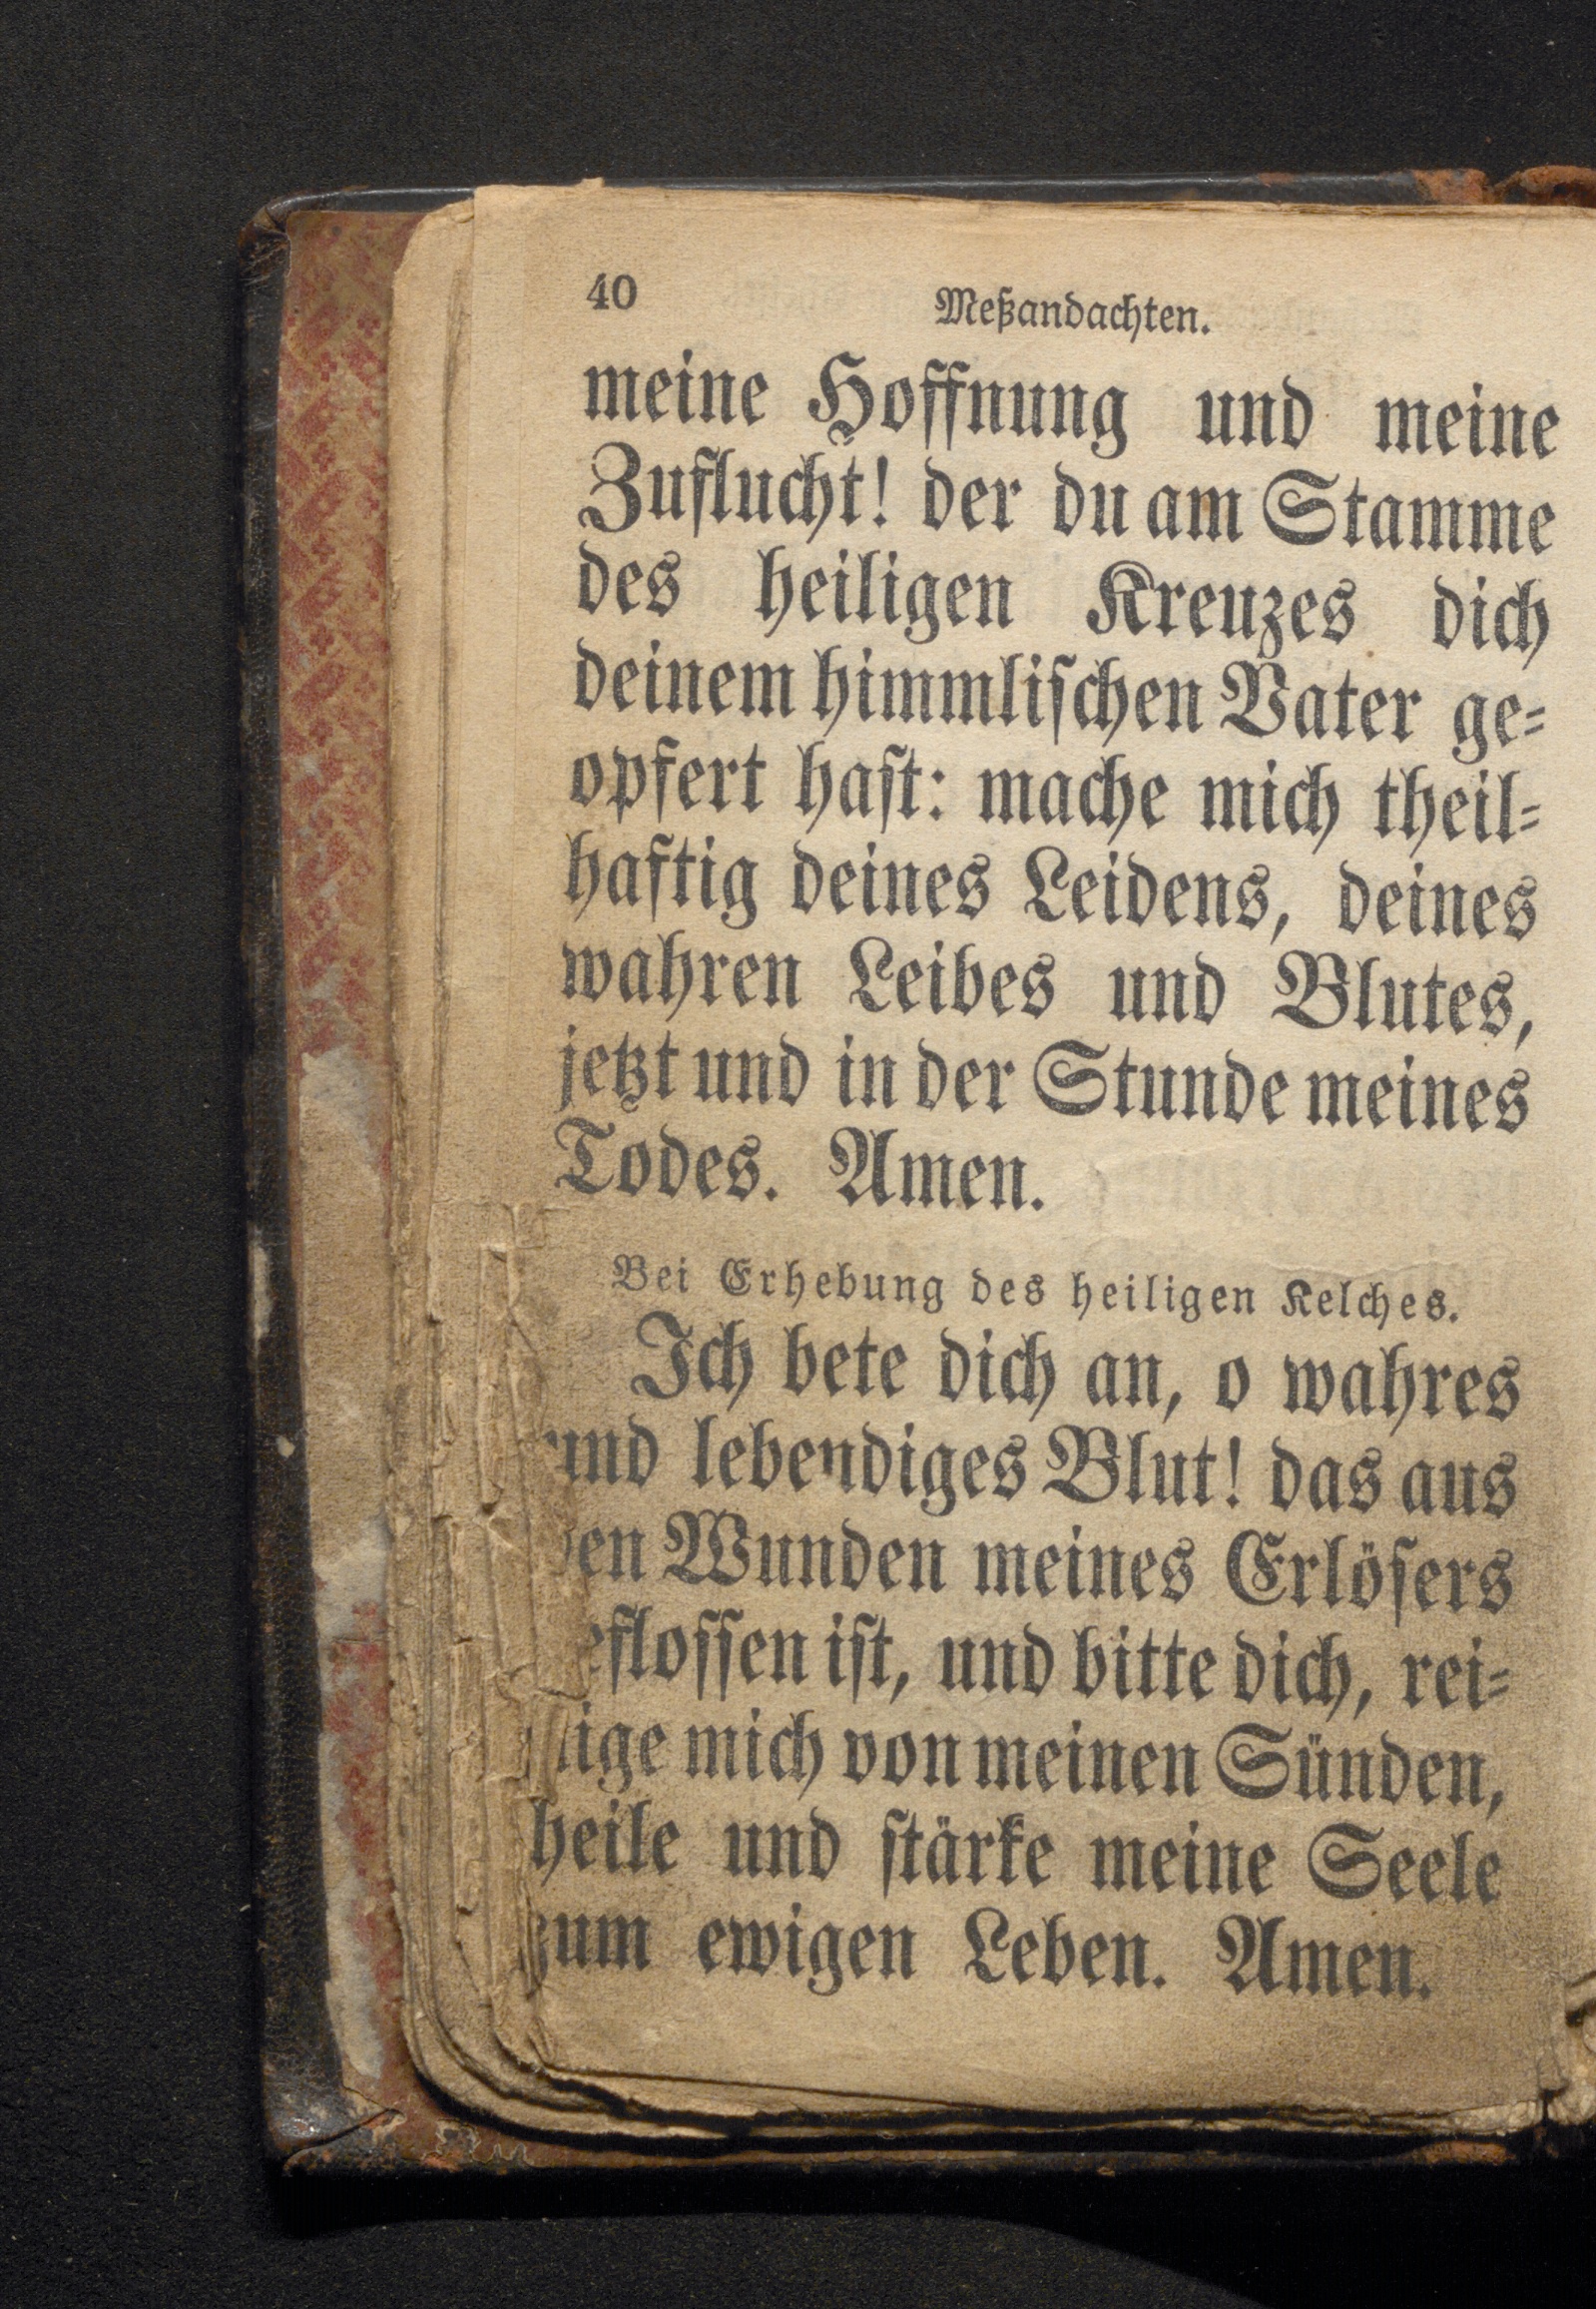 40
Meßandachten.
meine Hoffnung und meine
Zuflucht! der du am Stamme
des heiligen Kreuzes dich
deinem himmlischen Vater ge=
opfert hast: mache mich theil=
haftig deines Leidens, deines
wahren Leibes und Blutes,
jetzt und in der Stunde meines
Todes. Amen.
Bei Erhebung des heiligen Kelches.
Ich bete dich an, o wahres
und lebendiges Blut! das aus
den Wunden meines Erlösers
geflossen ist, und bitte dich, rei=
nige mich von meinen Sünden,
heile und stärke meine Seele
zum ewigen Leben. Amen.